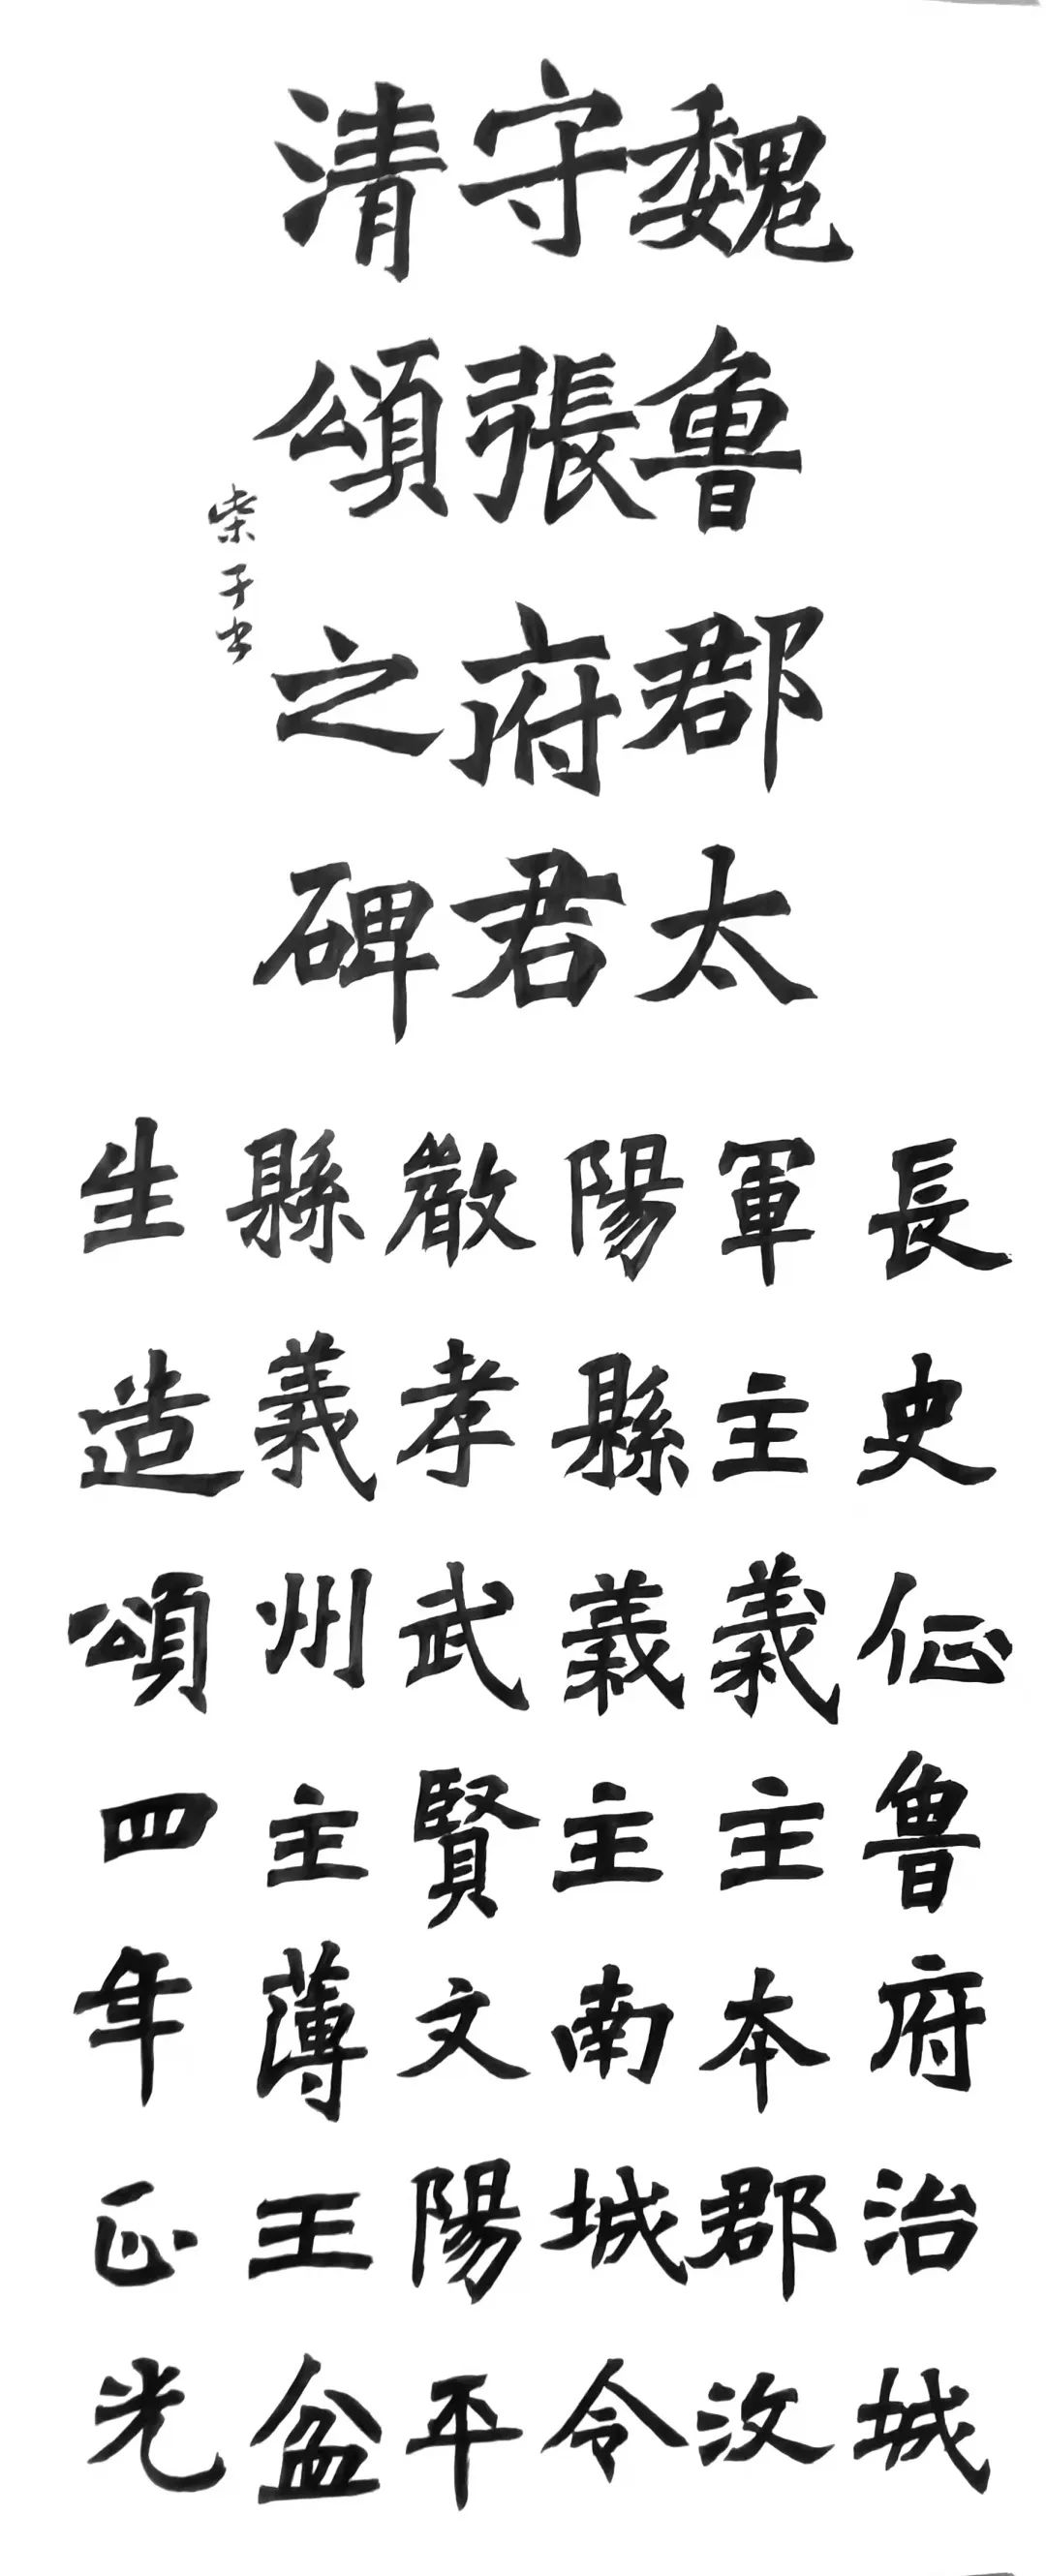 魏魯郡太
守張府君
清頌之碑
柴子书
長史征魯府治城
軍主義主本郡汶
陽縣義主南城令
嚴孝武賢文陽平
縣義州主薄王盆
生造頌四年正光